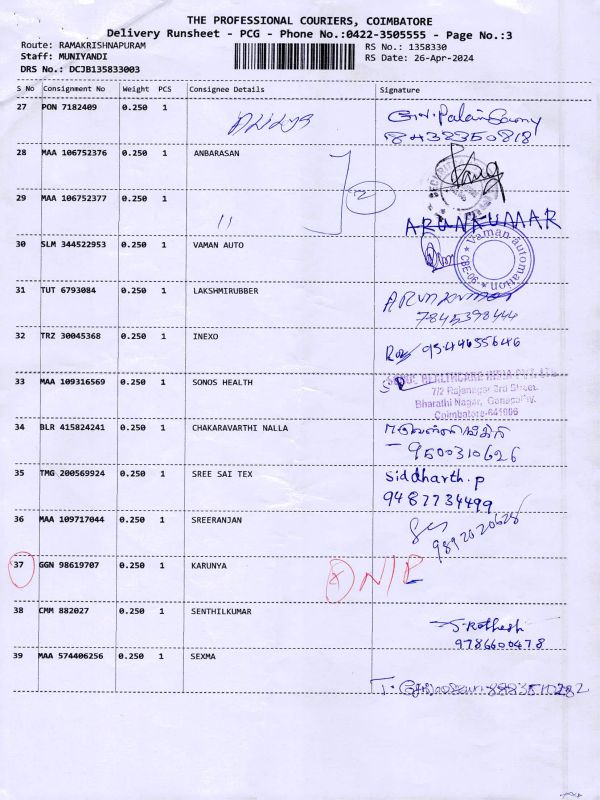 THE PROFESSIONAL COURIERS, COIMBATORE
Delivery Runsheet - PCG - Phone No.:0422-3505555 - Page No.:3
Route: RAMAKRISHNAPURAM
Staff: MUNIYANDI
DRS No.: DCJB135833003
RS No.: 1358330
RS Date: 26-Apr-2024
S No Consignment No Weight PCS Consignee Details Signature
27 PON 7182409 0.250 1
8438350818
28 MAA 106752376 0.250 1 ANBARASAN
2
29 MAA 106752377 0.250 1
11
ARUNKUMAR
30 SLM 344522953 0.250 1 VAMAN AUTO
Vaman automation
CBE-06
31 TUT 6793084 0.250 1 LAKSHMIRUBBER
7845398444
32 TRZ 30045368 0.250 1 INEXO
33 MAA 109316569 0.250 1 SONOS HEALTH
7/2 Rajanagar 3rd Street,
Bharathi Nagar, Ganapathy,
Coimbatore-641006
34 BLR 415824241 0.250 1 CHAKARAVARTHI NALLA
9500310626
35 TMG 200569924 0.250 1 SREE SAI TEX
siddharth.p
9487734499
36 MAA 109717044 0.250 1 SREERANJAN
9892020628
37 GGN 98619707 0.250 1 KARUNYA
38 CMM 882027 0.250 1 SENTHILKUMAR
9786600478
39 MAA 574406256 0.250 1 SEXMA